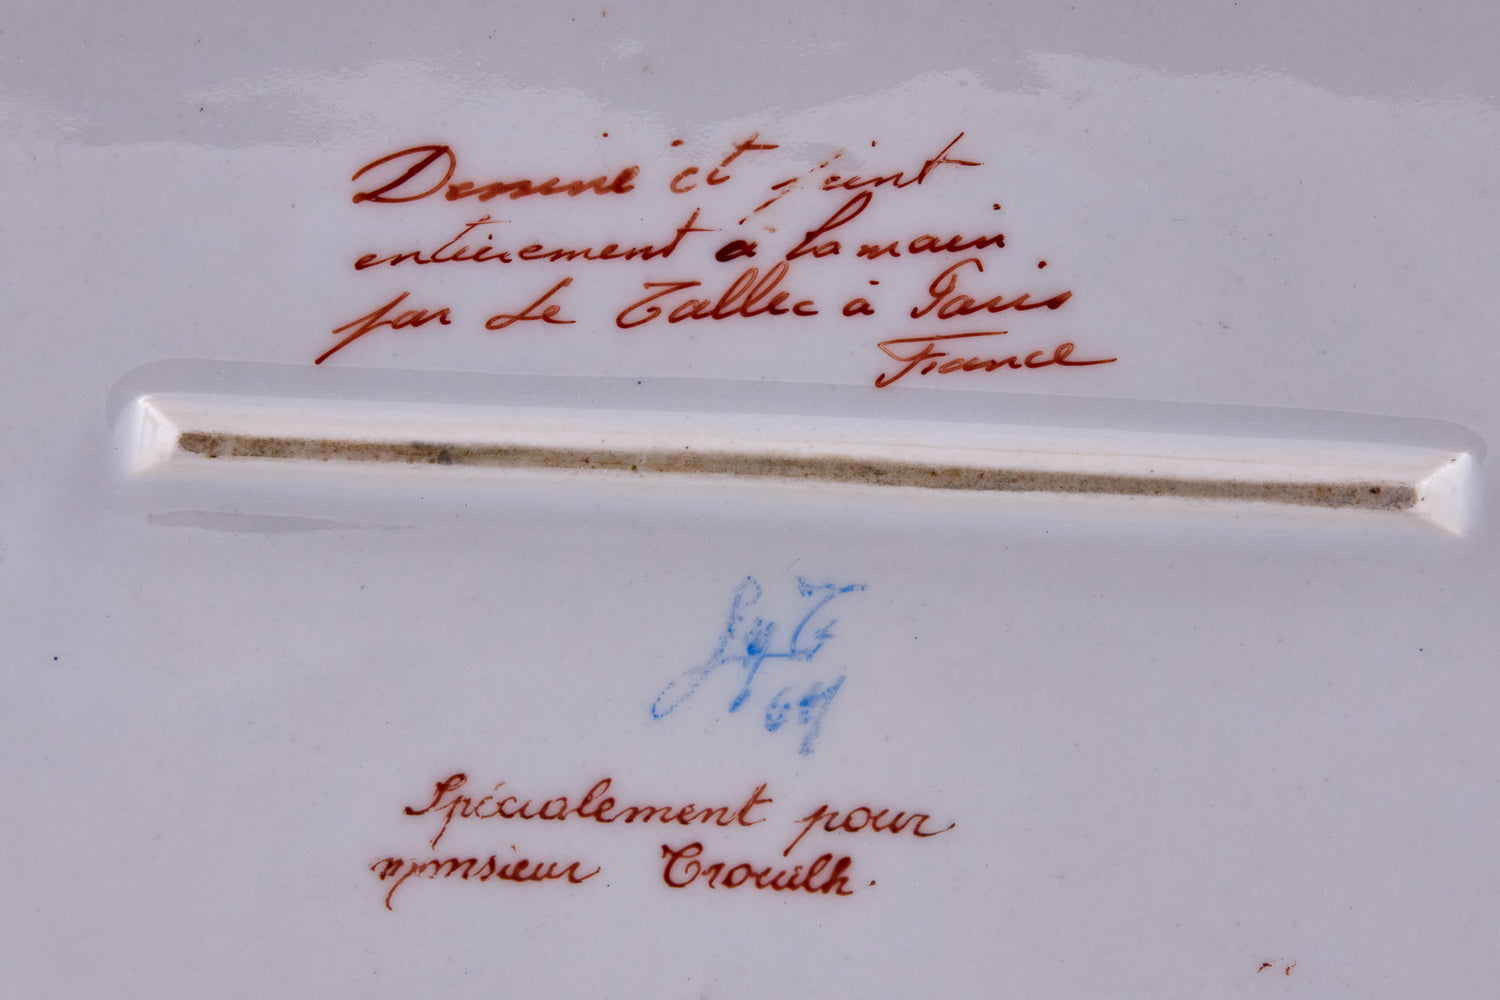 Dessiné et peint
entièrement à la main
par Le Tallec à Paris
France
Spécialement pour
monsieur Trouilh